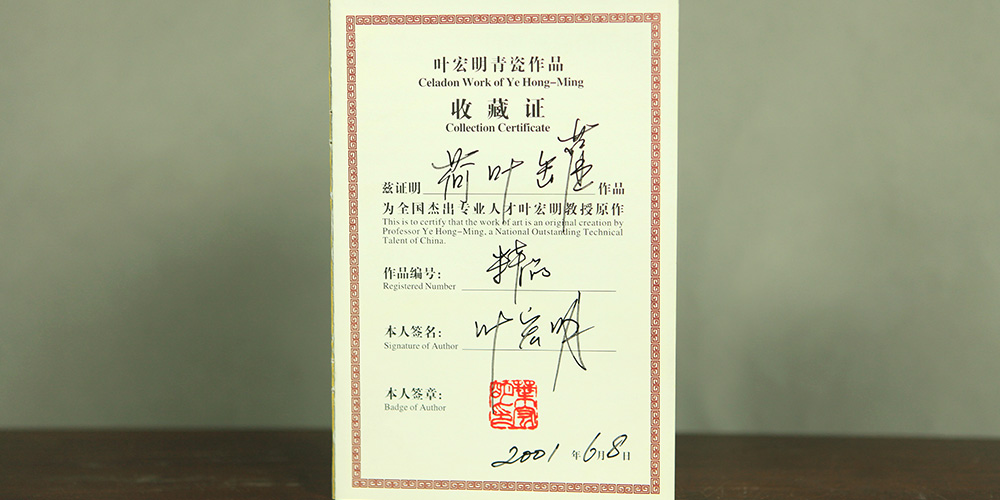 叶宏明青瓷作品
Celadon Work of Ye Hong-Ming
收藏证
Collection Certificate
兹证明 荷叶 作品
为全国杰出专业人才叶宏明教授原作
This is to certify that the work of art is an original creation by
Professor Ye Hong-Ming, a National Outstanding Technical
Talent of China.
作品编号:
Registered Number
本人签名: 叶宏明
Signature of Author
本人签章:
Badge of Author
2001年6月8日